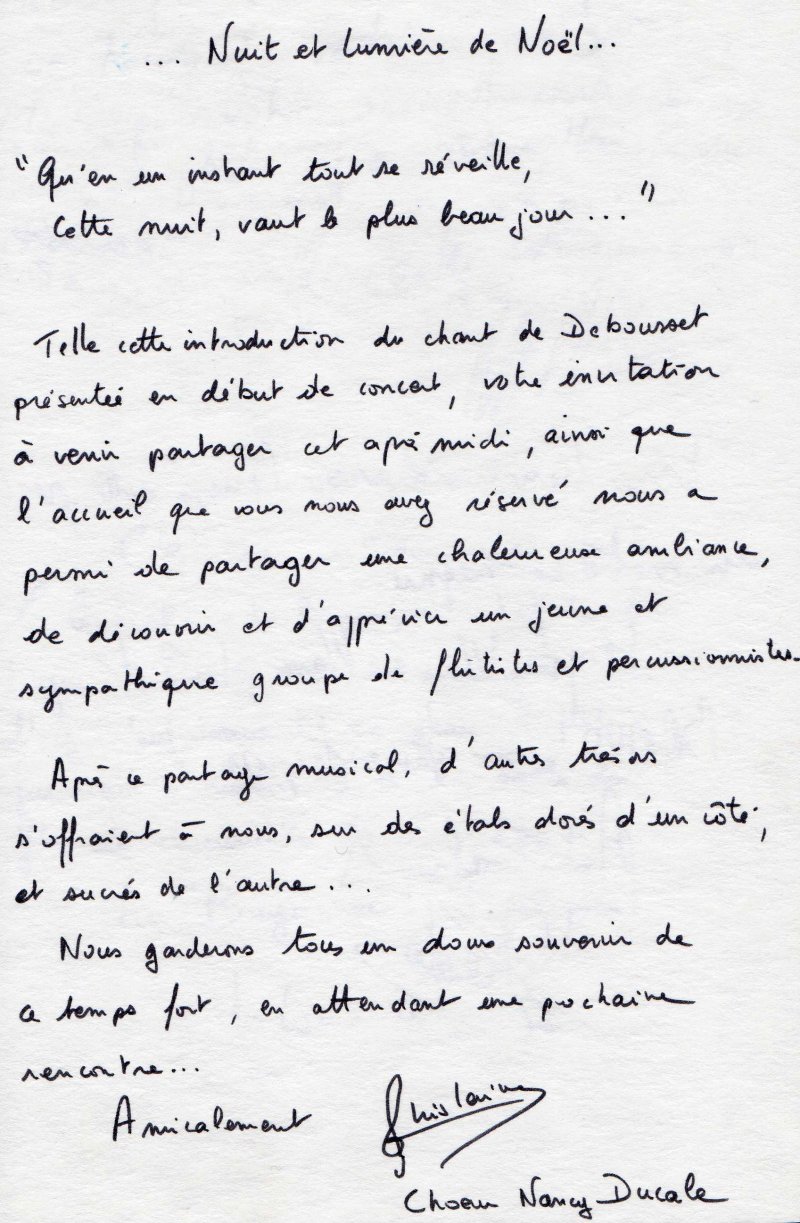 ... Nuit et lumière de Noël...
"Qu'en un instant tout se réveille,
Cette nuit, vaut le plus beau jour..."
Telle cette introduction du chant de Debousset
présentée en début de concert, votre invitation
à venir partager cet après midi, ainsi que
l'accueil que vous nous avez réservé nous a
permi de partager une chaleureuse ambiance,
de découvrir et d'apprécier un jeune et
sympathique groupe de flûtistes et percussionnistes.
Après ce partage musical, d'autres trésors
s'offraient à nous, sur des étals dorés d'un côté,
et sucrés de l'autre...
Nous garderons tous un doux souvenir de
ce temps fort, en attendant une prochaine
rencontre...
Amicalement Ghislaine
Choeur Nancy Ducale